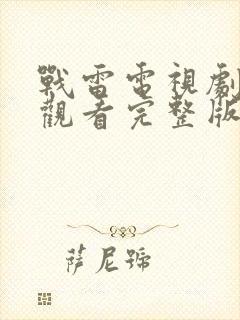 戰雷電視劇
觀看完整版
薩尼號